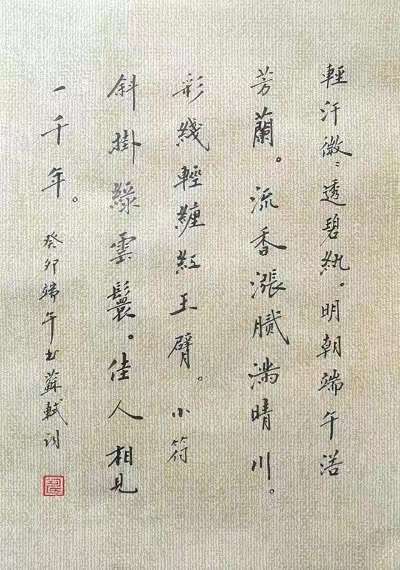 輕汗微〻透碧紈。明朝端午浴
芳蘭。流香漲膩滿晴川。
彩綫輕纏紅玉臂。小符
斜掛綠雲鬟。佳人相見
一千年。癸卯端午书蘇軾詞